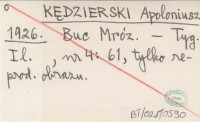 KĘDZIERSKI Apoloniusz
1926. Buc Mróz. – Tyg.
Il. , nr 4: 61, tylko re-
prod. obrazu.
BT/025/0590